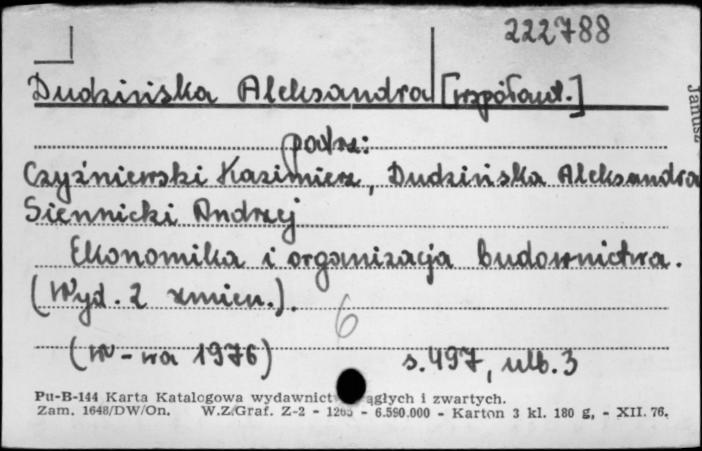 222788
Dudzińska Aleksandra [współaut.]
Janusz
patrz:
Czyżniewski Kazimierz, Dudzińska Aleksandra
Siennicki Andrzej
Ekonomika i organizacja budownictwa.
(Wyd. 2 zmien.).
6
(W-wa 1976) s. 497, nlb. 3
Pu-B-144 Karta Katalogowa wydawnict ągłych i zwartych.
Zam. 1648/DW/On. W.Z.Graf. Z-2 - - 6.590.000 - Karton 3 kl. 180 g, - XII. 76.